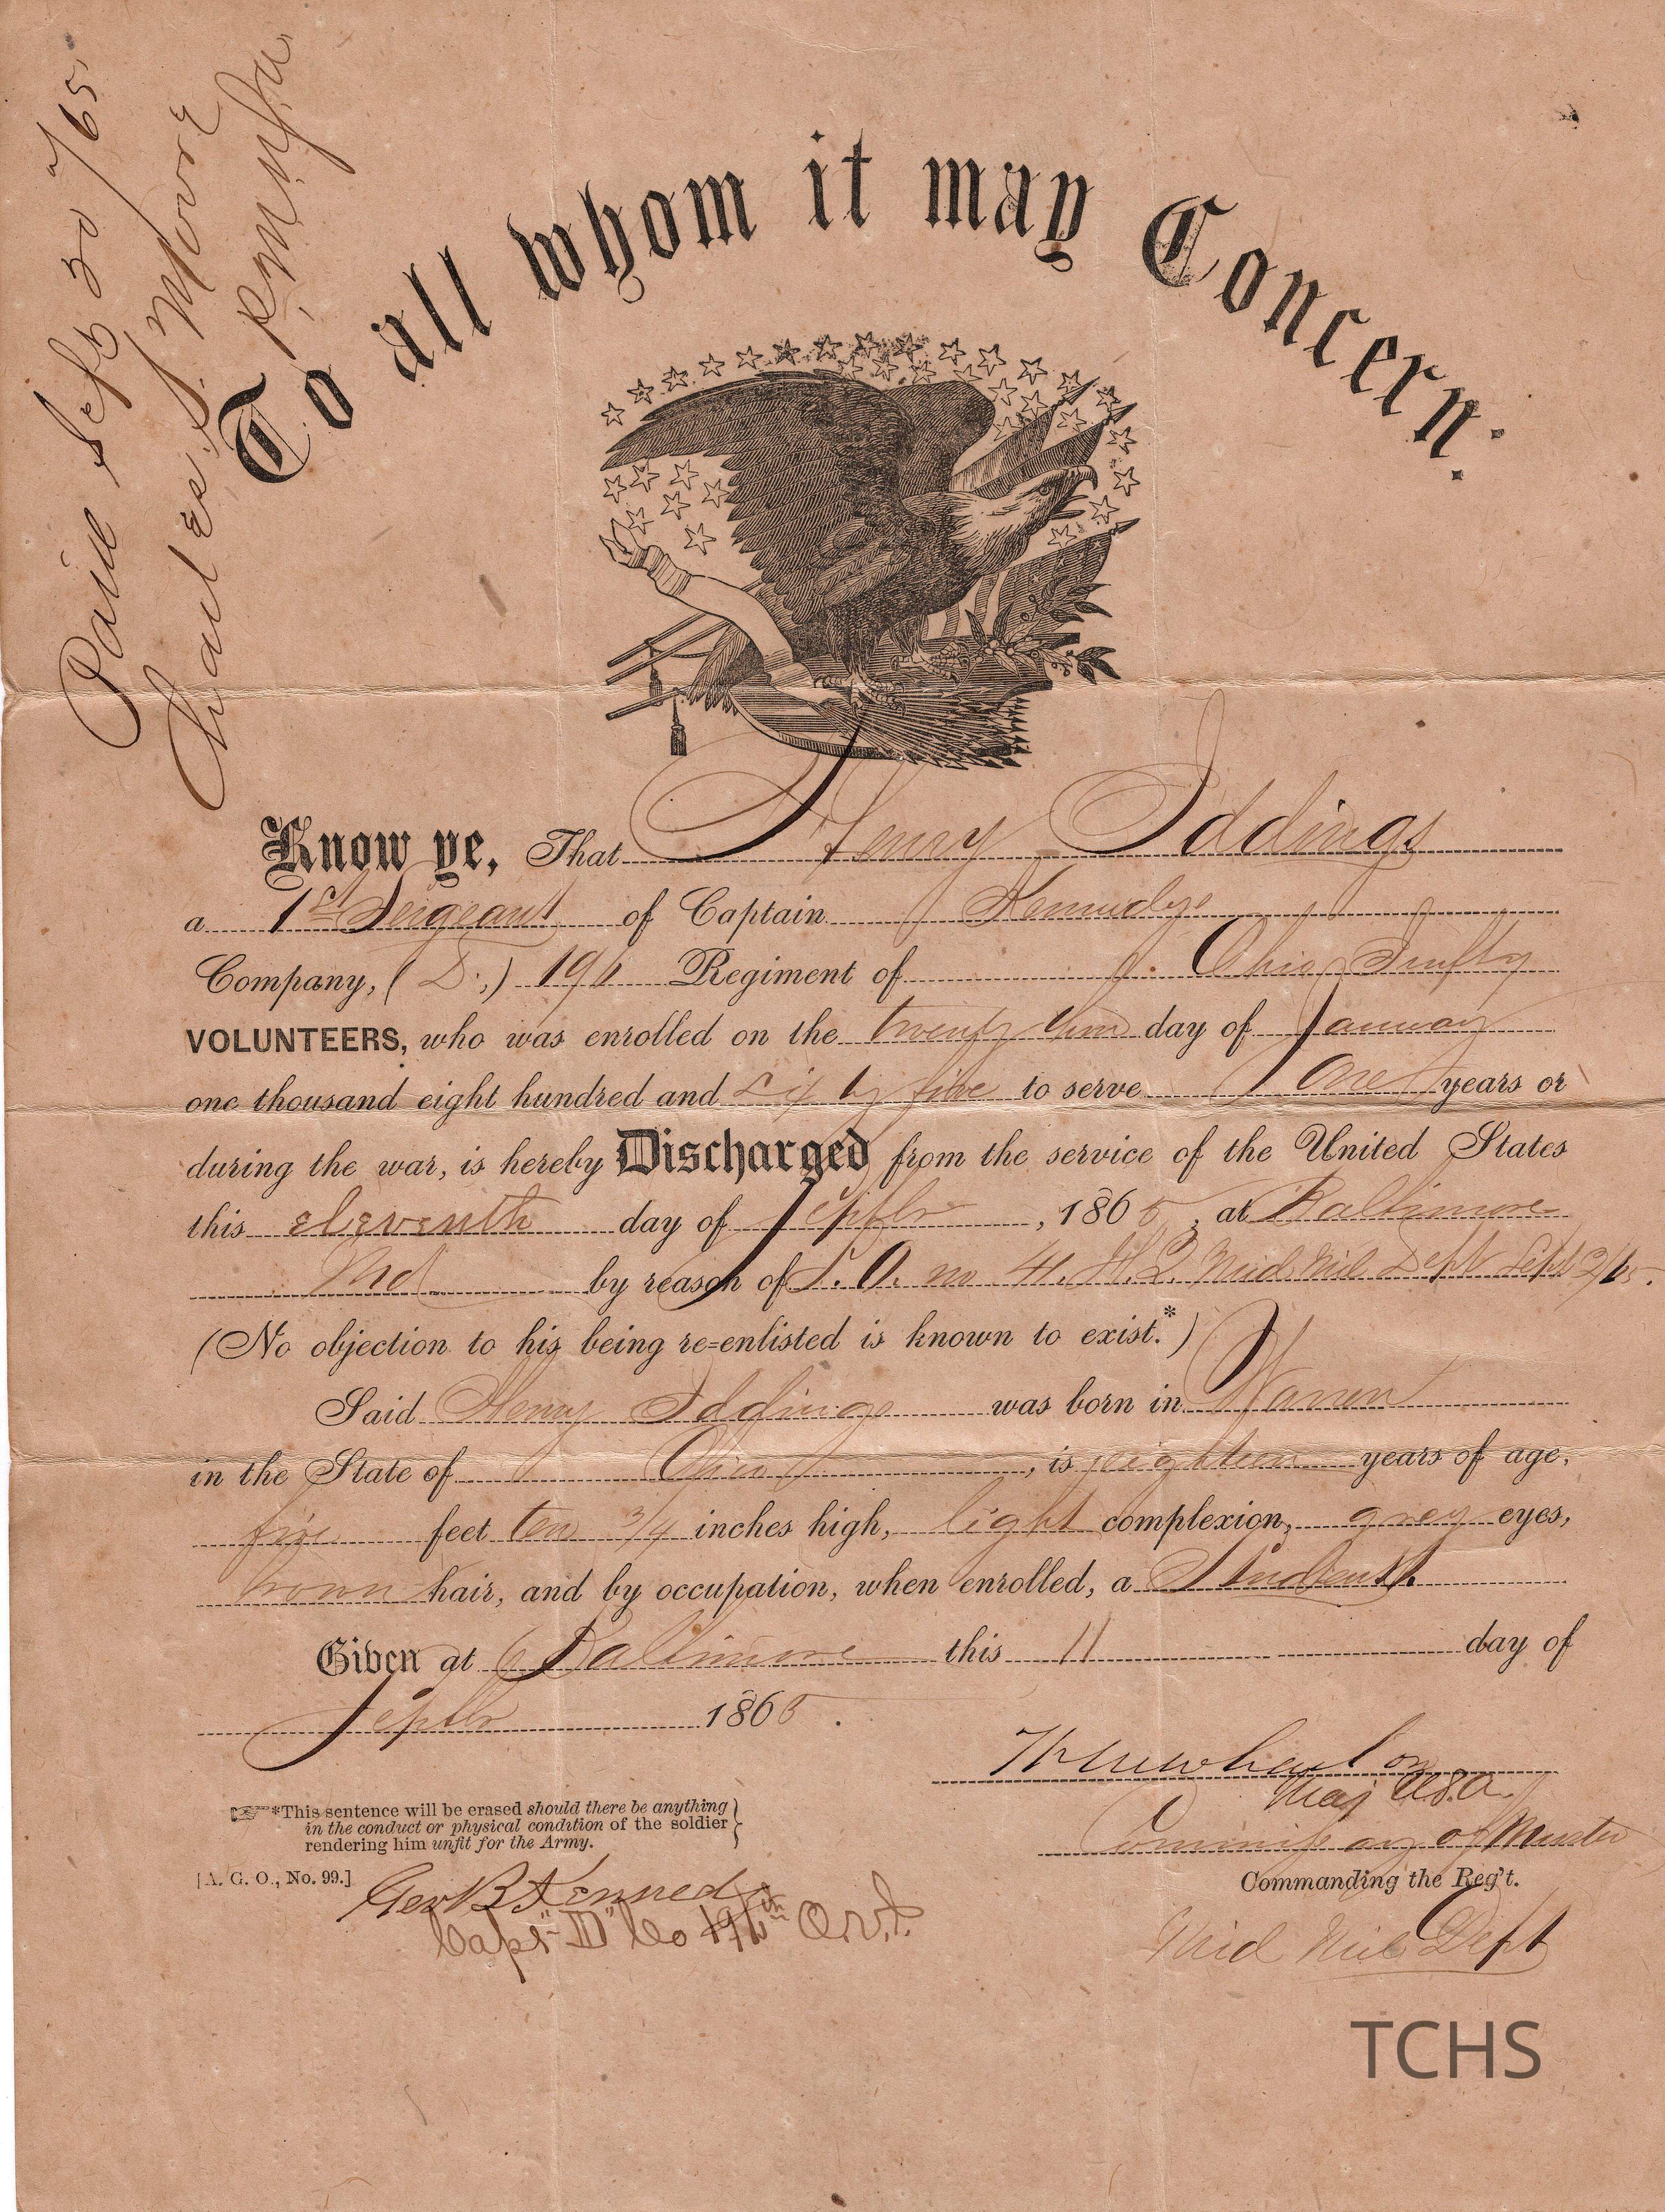 Paid Sept 20 /65
Charles J. Moore
P.M. U.S.A.
To all whom it may Concern:
Know ye, That Henry Iddings
a 1st Sergeant of Captain Kennedys
Company, (D.) 196 Regiment of Ohio Inftty
VOLUNTEERS, who was enrolled on the twenty day of January
one thousand eight hundred and sixty five to serve One years or
during the war, is hereby Discharged from the service of the United States
this eleventh day of Septbr, 1865, at Baltimore
Md by reason of S. O. no 41. H. Q. Mid. Mil Dept Sept 2/65.
(No objection to his being re=enlisted is known to exist.*)
Said Henry Iddings was born in Warren
in the State of Ohio, is eighteen years of age,
five feet ten 3/4 inches high, light complexion, grey eyes,
brown hair, and by occupation, when enrolled, a Student.
Given at Baltimore this 11 day of
Septbr 1865.
Maj U.S.A.
Commissary of Muster
Commanding the Reg't.
Mid Mil Dept
☞*This sentence will be erased should there be anything
in the conduct or physical condition of the soldier
rendering him unfit for the Army.
[A. G. O., No. 99.]
Geo B Kennedy
Capt "D" Co 196th O.V.I.
TCHS